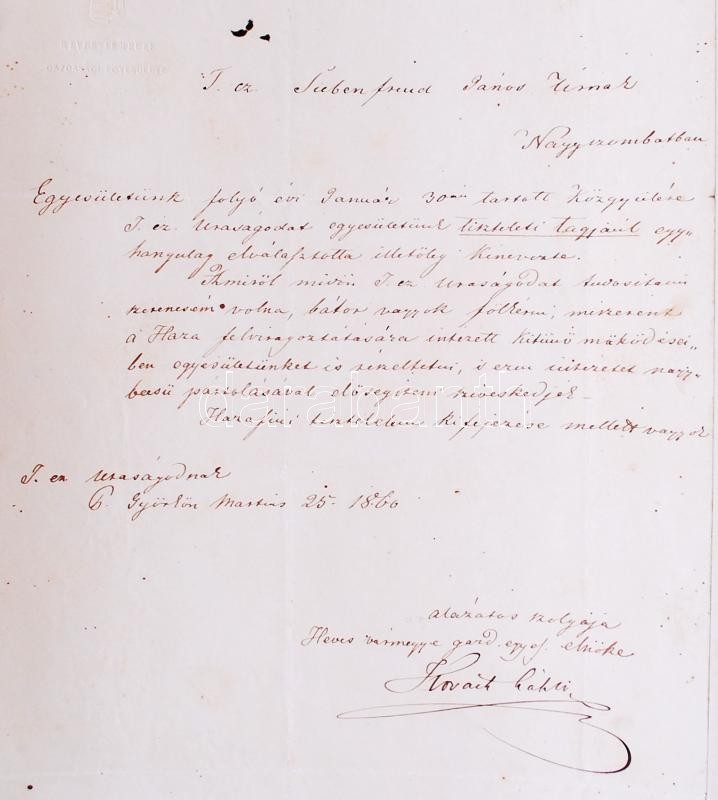 HEVESVÁRMEGYE
GAZDASÁGI EGYESÜLETE
T. cz. Siebenfreud János Úrnak
Nagyszombatban
Egyesületünk folyó évi Január 30án tartott Közgyülése
T. cz. Uraságodat egyesületünk tiszteleti tagjául egy„
hangulag elválasztotta illetőleg kinevezte.
Amiről midőn T. cz. Uraságodat tudositani
szerencsém volna, bátor vagyok fölkérni, miszerent
a Haza felvirágoztatására intézett kitünő müködései„
ben egyesületünket is részeltetni, s ezen intézetet nagy„
becsü pártolásával elősegiteni sziveskedjék –
Hazafiui tiszteletem kifejezése mellett vagyok
T. cz Uraságodnak
Györkön Martius 25. 1860
alázatos szolgája
Heves vármegye gazd. egyes. elnöke
Kovách
darabanth